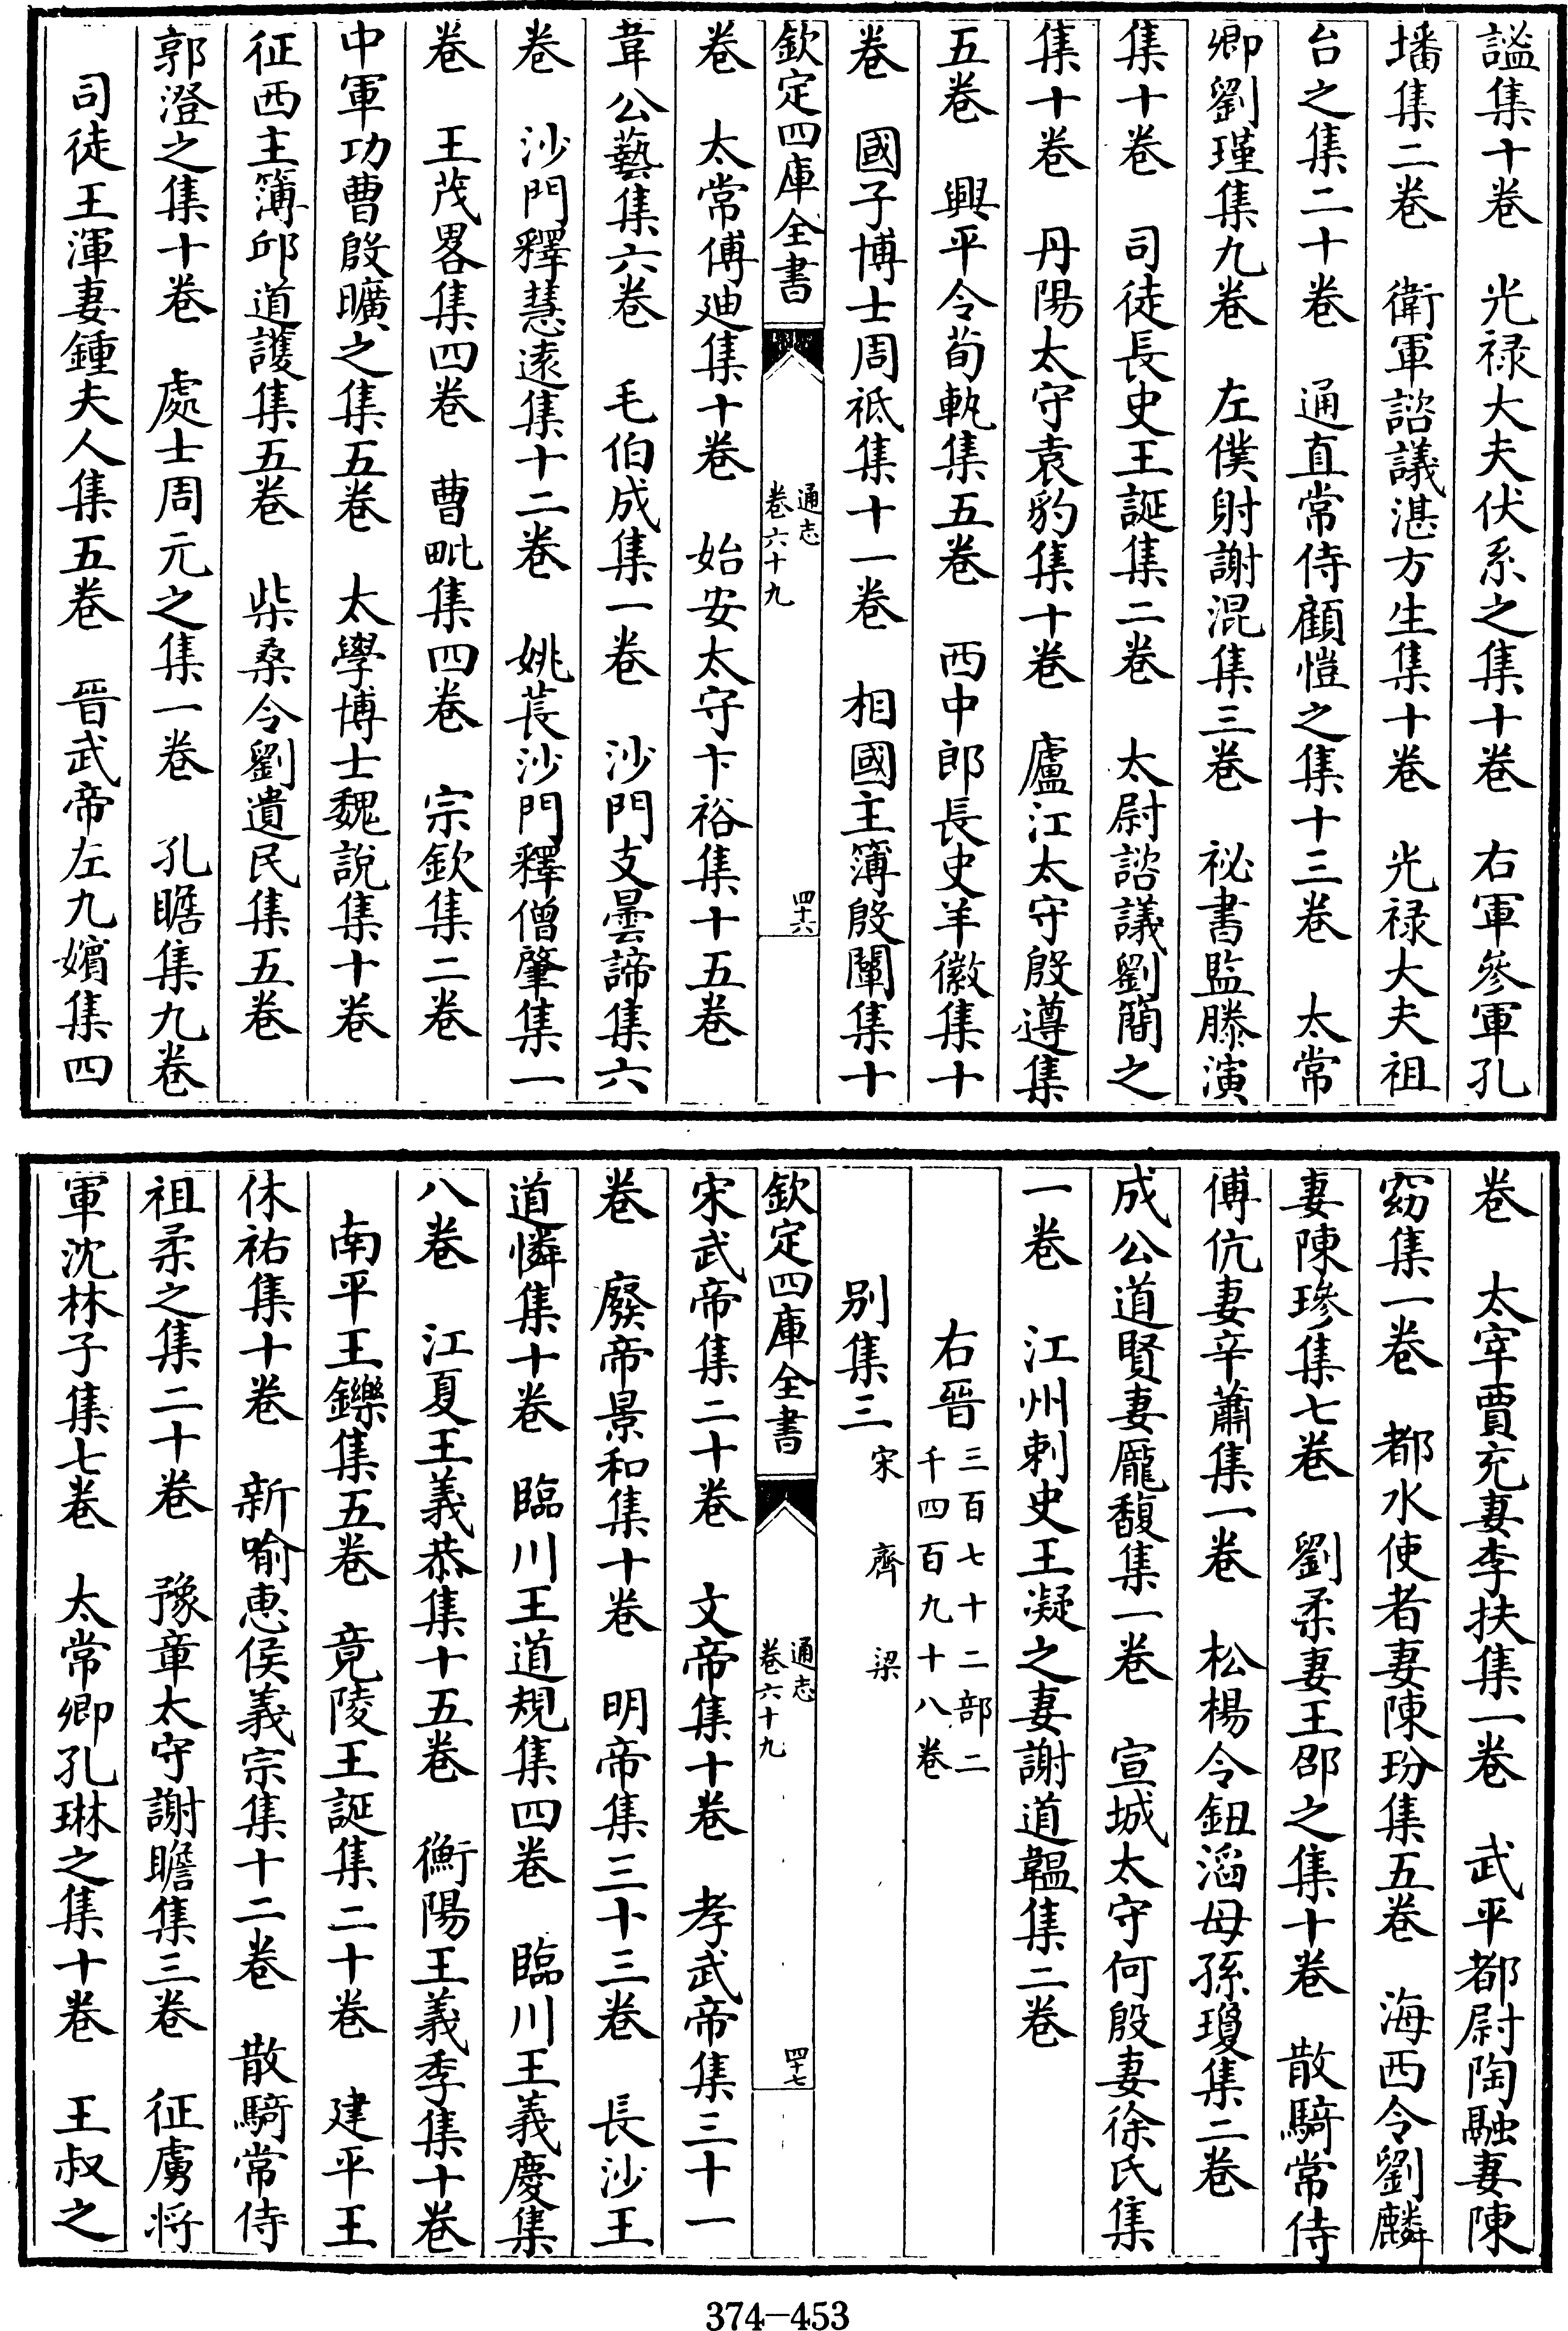 謐集十卷　光祿大夫伏系之集十卷　右軍參軍孔
墦集二卷　衛軍諮議湛方生集十卷　光祿大夫祖
台之集二十卷　通直常侍顧愷之集十三卷　太常
卿劉瑾集九卷　左僕射謝混集三卷　祕書監滕演
集十卷　司徒長史王誕集二卷　太尉諮議劉簡之
集十卷　丹陽太守袁豹集十卷　廬江太守殷遵集
五卷　興平令荀軌集五卷　西中郎長史羊徽集十
卷　國子博士周祇集十一卷　相國主簿殷闡集十
欽定四庫全書
通志
卷六十九
四十六
卷　太常傅廸集十卷　始安太守卞裕集十五卷
韋公藝集六卷　毛伯成集一卷　沙門支曇諦集六
卷　沙門釋慧遠集十二卷　姚萇沙門釋僧肇集一
卷　王茂畧集四卷　曹毗集四卷　宗欽集二卷
中軍功曹殷曠之集五卷　太學博士魏說集十卷
征西主簿邱道護集五卷　柴桑令劉遺民集五卷
郭澄之集十卷　處士周元之集一卷　孔瞻集九卷
司徒王渾妻鍾夫人集五卷　晉武帝左九嬪集四
卷　太宰賈充妻李扶集一卷　武平都尉陶融妻陳
窈集一卷　都水使者妻陳玢集五卷　海西令劉麟
妻陳璆集七卷　劉柔妻王邵之集十卷　散騎常侍
傅伉妻辛蕭集一卷　松楊令鈕滔母孫瓊集二卷
成公道賢妻龐馥集一卷　宣城太守何殷妻徐氏集
一卷　江州刺史王凝之妻謝道韞集二卷
右晉三百七十二部二
千四百九十八卷
別集三　宋　齊　梁
欽定四庫全書
通志
卷六十九
四十七
宋武帝集二十卷　文帝集十卷　孝武帝集三十一
卷　廢帝景和集十卷　明帝集三十三卷　長沙王
道憐集十卷　臨川王道規集四卷　臨川王義慶集
八卷　江夏王義恭集十五卷　衡陽王義季集十卷
南平王鑠集五卷　竟陵王誕集二十卷　建平王
休祐集十卷　新喻惠侯義宗集十二卷　散騎常侍
祖柔之集二十卷　豫章太守謝瞻集三卷　征虜將
軍沈林子集七卷　太常卿孔琳之集十卷　王叔之
374-453